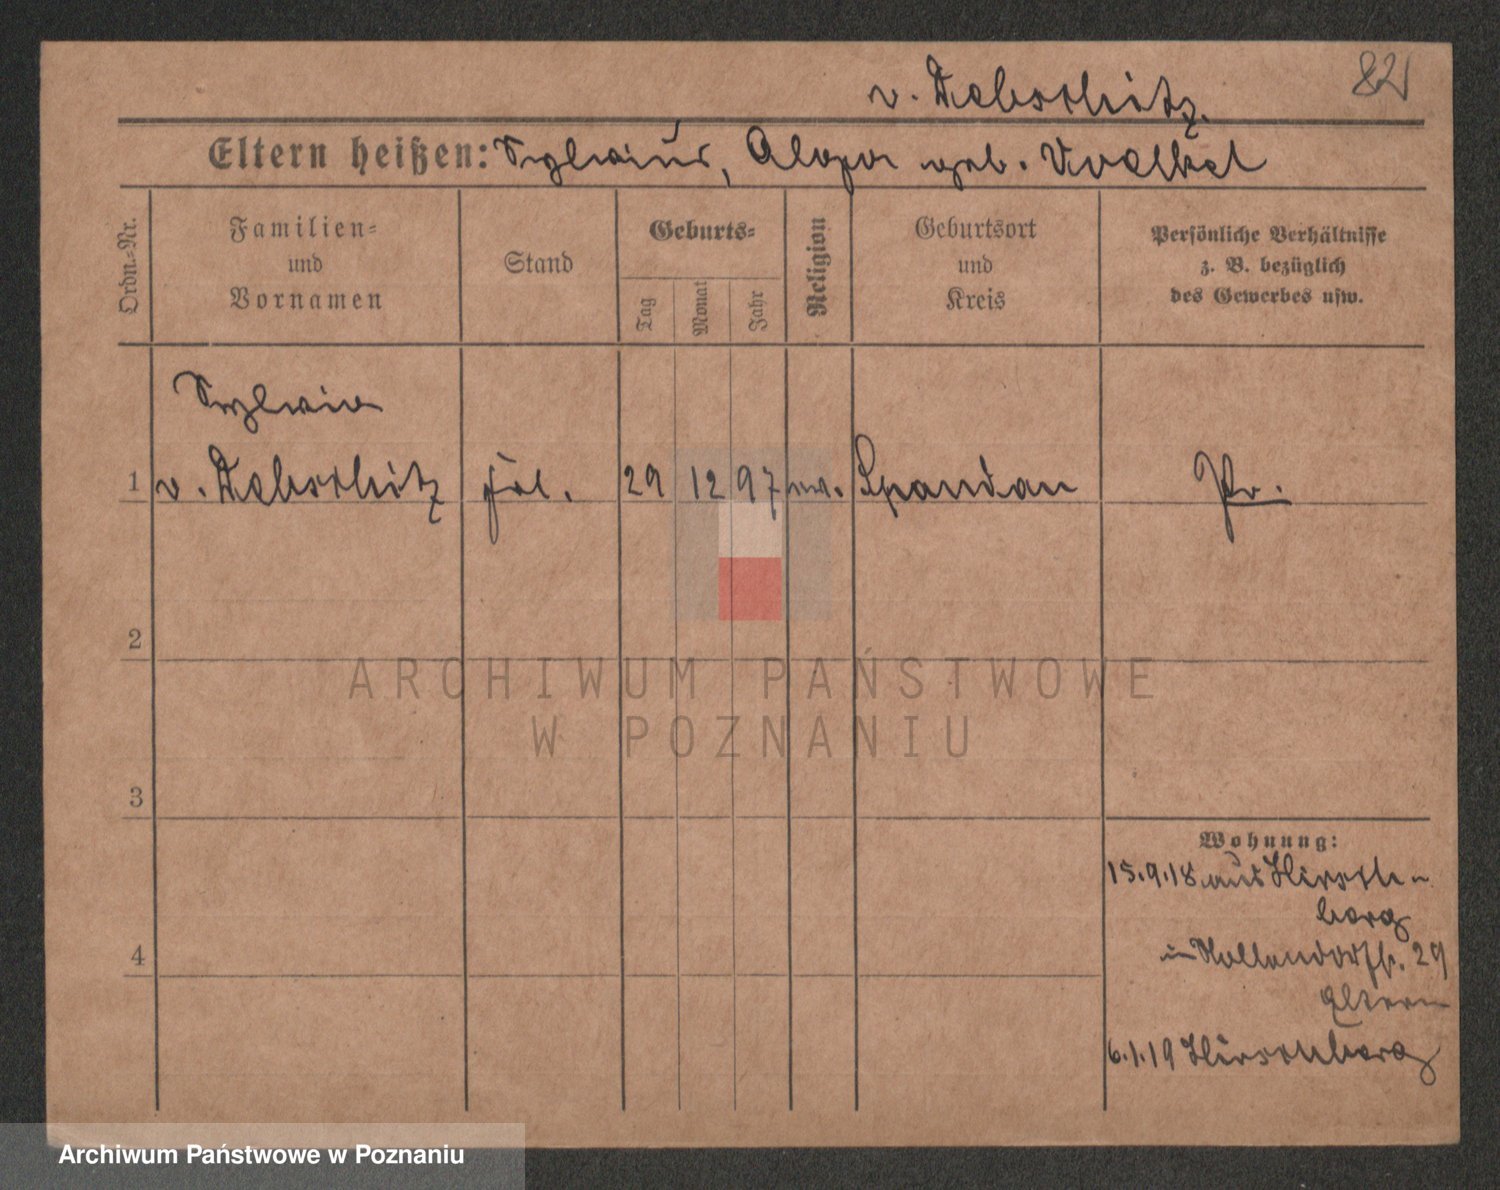 82
v. Debschitz.
Eltern heißen: Sylvius, geb. Voelkel
Ordn.-Nr.
Familien-
und
Vornamen
Stand
Geburts-
Tag
Monat
Jahr
Religion
Geburtsort
und
Kreis
Persönliche Verhältnisse
z. B. bezüglich
des Gewerbes usw.
Sylvia
1 v. Debschitz frl. 29 12 97 ev. Spandau Pr.
2
3
4
Wohnung:
15.9.18 aus Hirsch-
berg
in Nollendorfstr. 29
Eltern
6.1.19 Hirschberg
ARCHIWUM PAŃSTWOWE
W POZNANIU
Archiwum Państwowe w Poznaniu